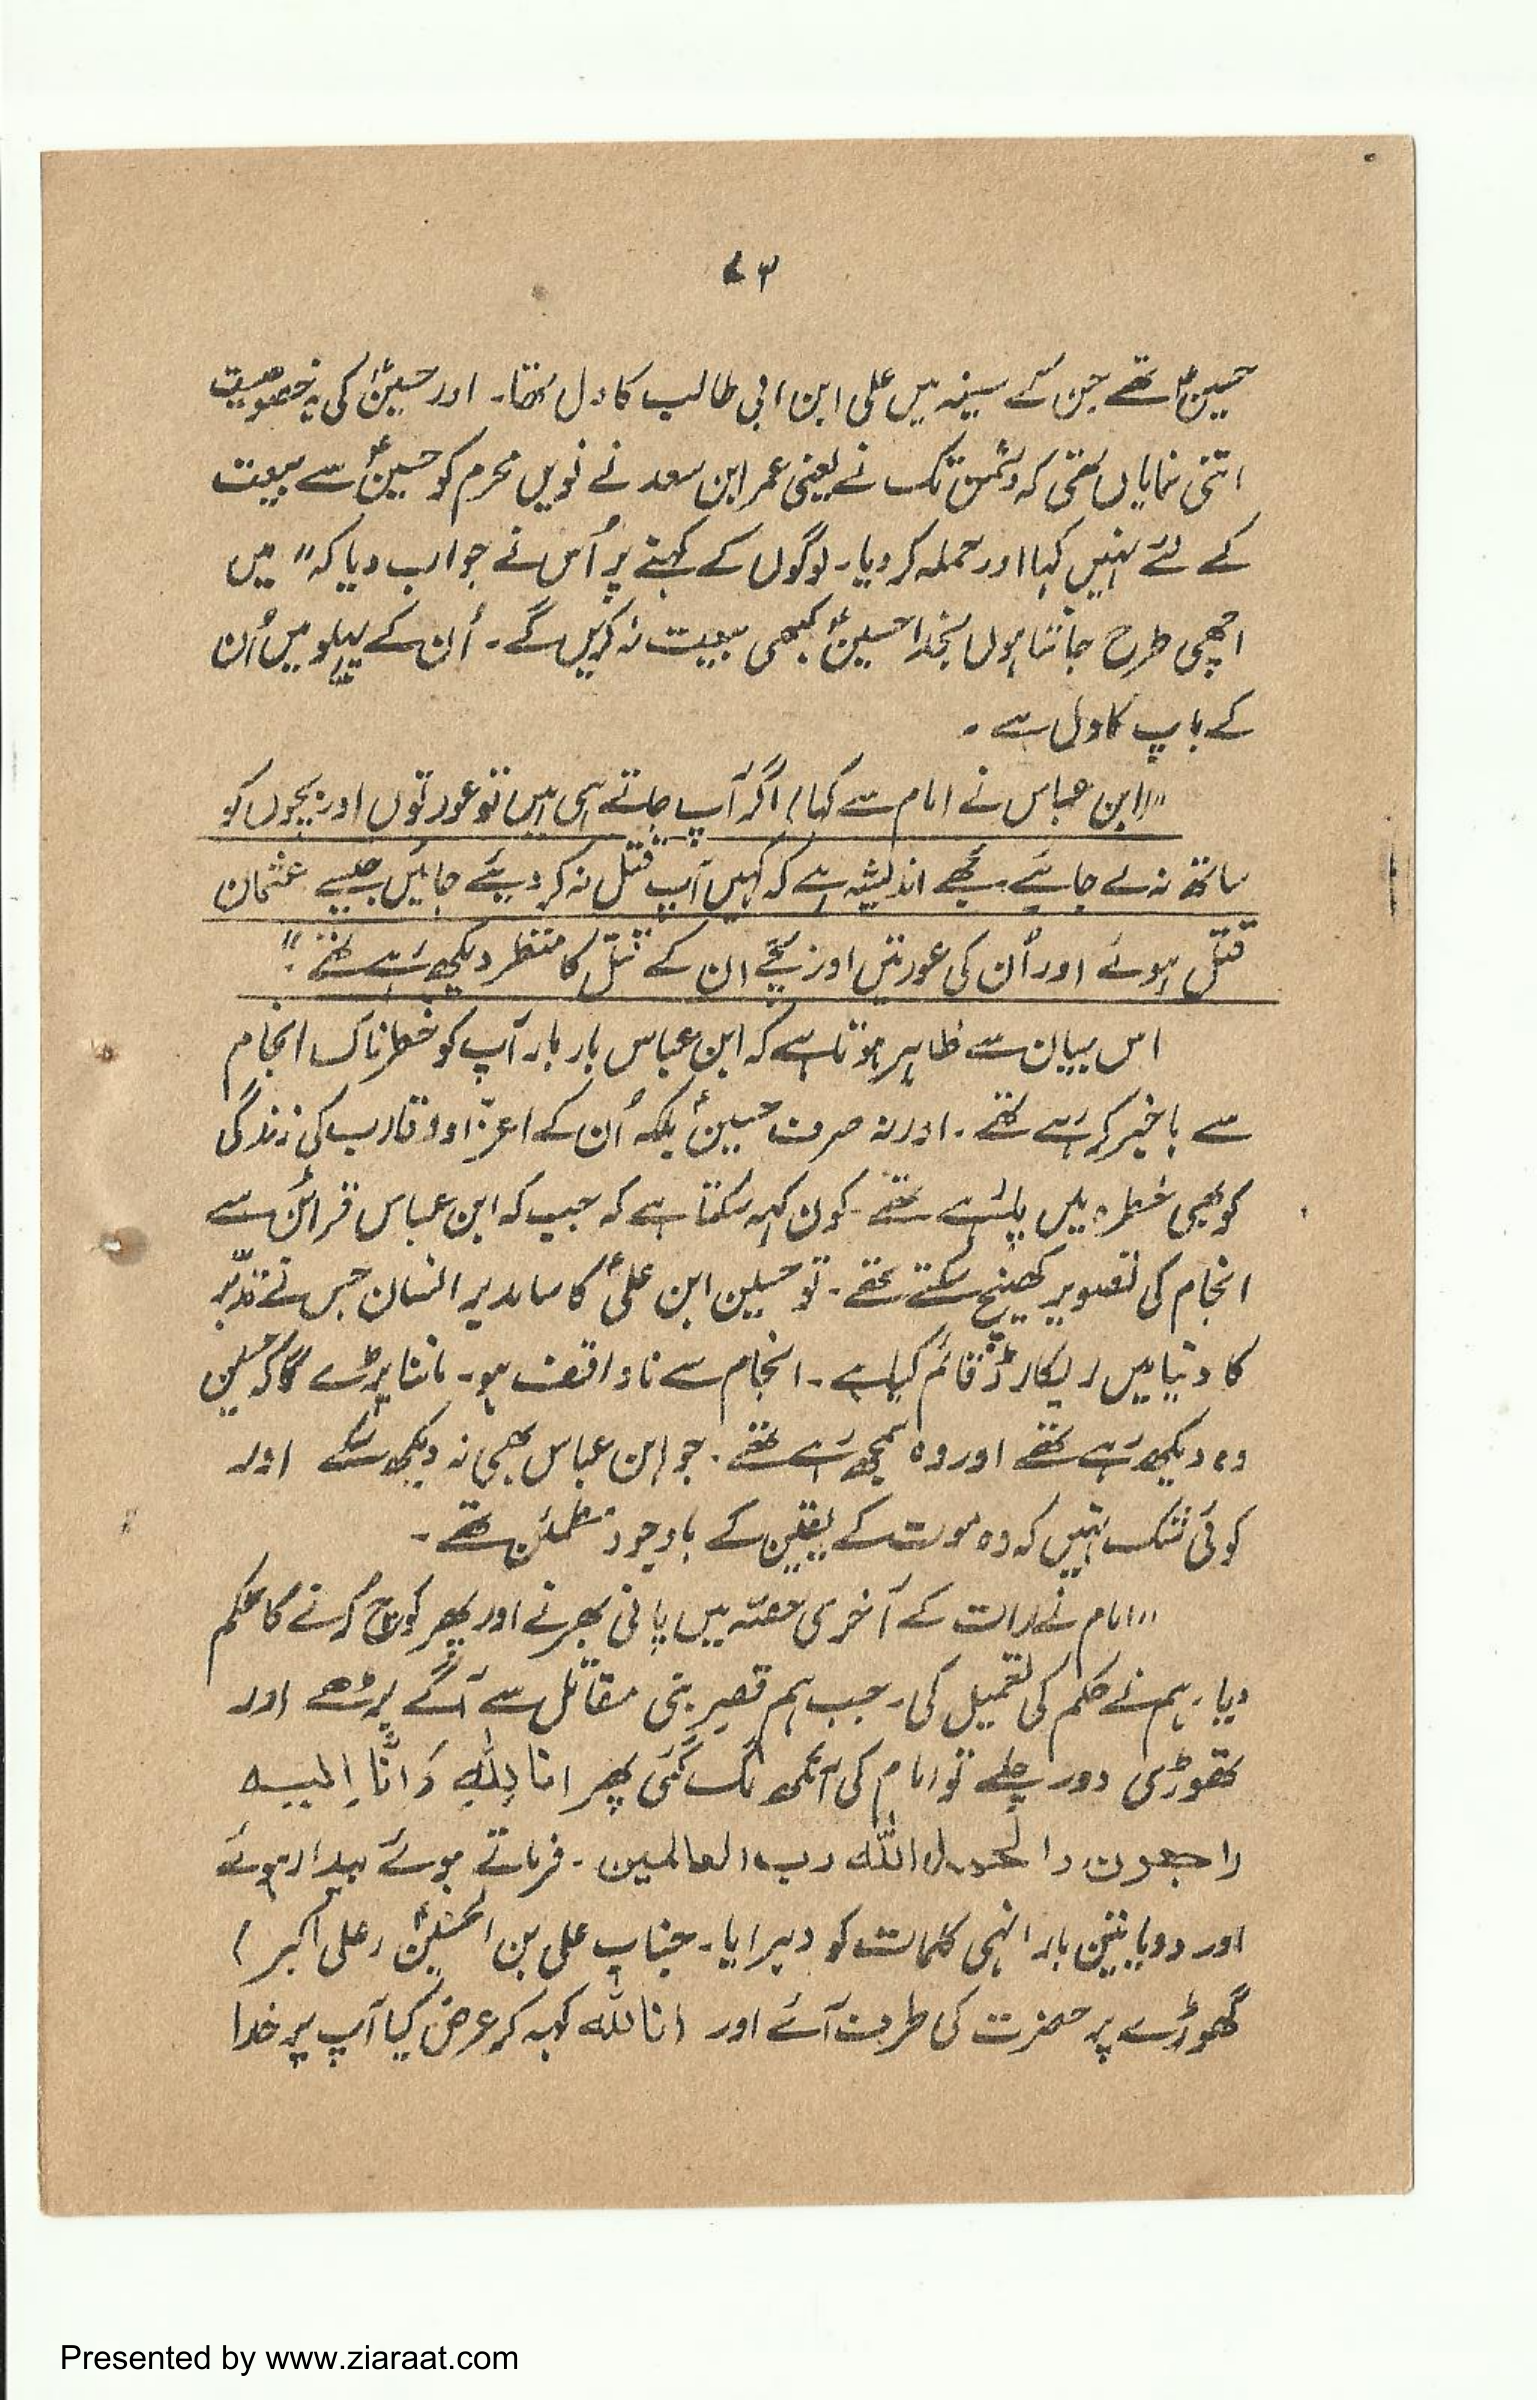 ۷۳
حسینؑ تھے جن کے سینہ میں علی ابن ابی طالب کا دل تھا۔ اور حسینؑ کی یہ خصوصیت
اتنی نمایاں تھی کہ دشمن تک نے یعنی عمر ابن سعد نے نویں محرم کو حسینؑ سے بیعت
کے لئے نہیں کہا اور حملہ کر دیا۔ لوگوں کے کہنے پر اُس نے جواب دیا کہ " میں
اچھی طرح جانتا ہوں بخدا حسینؑ کبھی بیعت نہ کریں گے۔ اُن کے پہلو میں اُن
کے باپ کا دل ہے ۔
"(ابن عباس نے امام سے کہا) اگر آپ جاتے ہی ہیں تو عورتوں اور بچوں کو
ساتھ نہ لے جائیے مجھے اندیشہ ہے کہ کہیں آپ قتل نہ کر دیئے جائیں جیسے عثمان
قتل ہوئے اور اُن کی عورتیں اور بچے ان کے قتل کا منظر دیکھ رہے تھے ۔"
اس بیان سے ظاہر ہوتا ہے کہ ابن عباس بار بار آپ کو خطرناک انجام
سے باخبر کر رہے تھے ۔ اور نہ صرف حسینؑ بلکہ اُن کے اعزا و اقارب کی زندگی
کو بھی خطرہ میں پا رہے تھے ۔ کون کہہ سکتا ہے کہ جب کہ ابن عباس قرائن سے
انجام کی تصویر کھینچ سکتے تھے ۔ تو حسین ابن علیؑ کا سا مدبر انسان جس نے تدبّر
کا دنیا میں ریکارڈ قائم کیا ہے ۔ انجام سے ناواقف ہو۔ ماننا پڑے گا کہ حسین
وہ دیکھ رہے تھے اور وہ سمجھ رہے تھے ۔ جو ابن عباس بھی نہ دیکھ سکے اور
کوئی شک نہیں کہ وہ موت کے یقین کے باوجود مطمئن تھے ۔
"امام نے رات کے آخری حصّہ میں پانی بھرنے اور پھر کوچ کرنے کا حکم
دیا۔ ہم نے حکم کی تعمیل کی۔ جب ہم قصرِ بنی مقاتل سے آگے بڑھے اور
تھوڑی دور چلے تو امام کی آنکھ لگ گئی پھر انا لِلّٰہِ وَ انَّا اِلیہ
راجعون والحمد للہ رب العالمین ۔ فرماتے ہوئے بیدار ہوئے
اور دو یا تین بار انہی کلمات کو دہرایا۔ جناب علی بن الحسینؑ (علی اکبر)
گھوڑے پر حضرت کی طرف آئے اور انا للہ کہہ کر عرض کیا آپ پر خدا
Presented by www.ziaraat.com